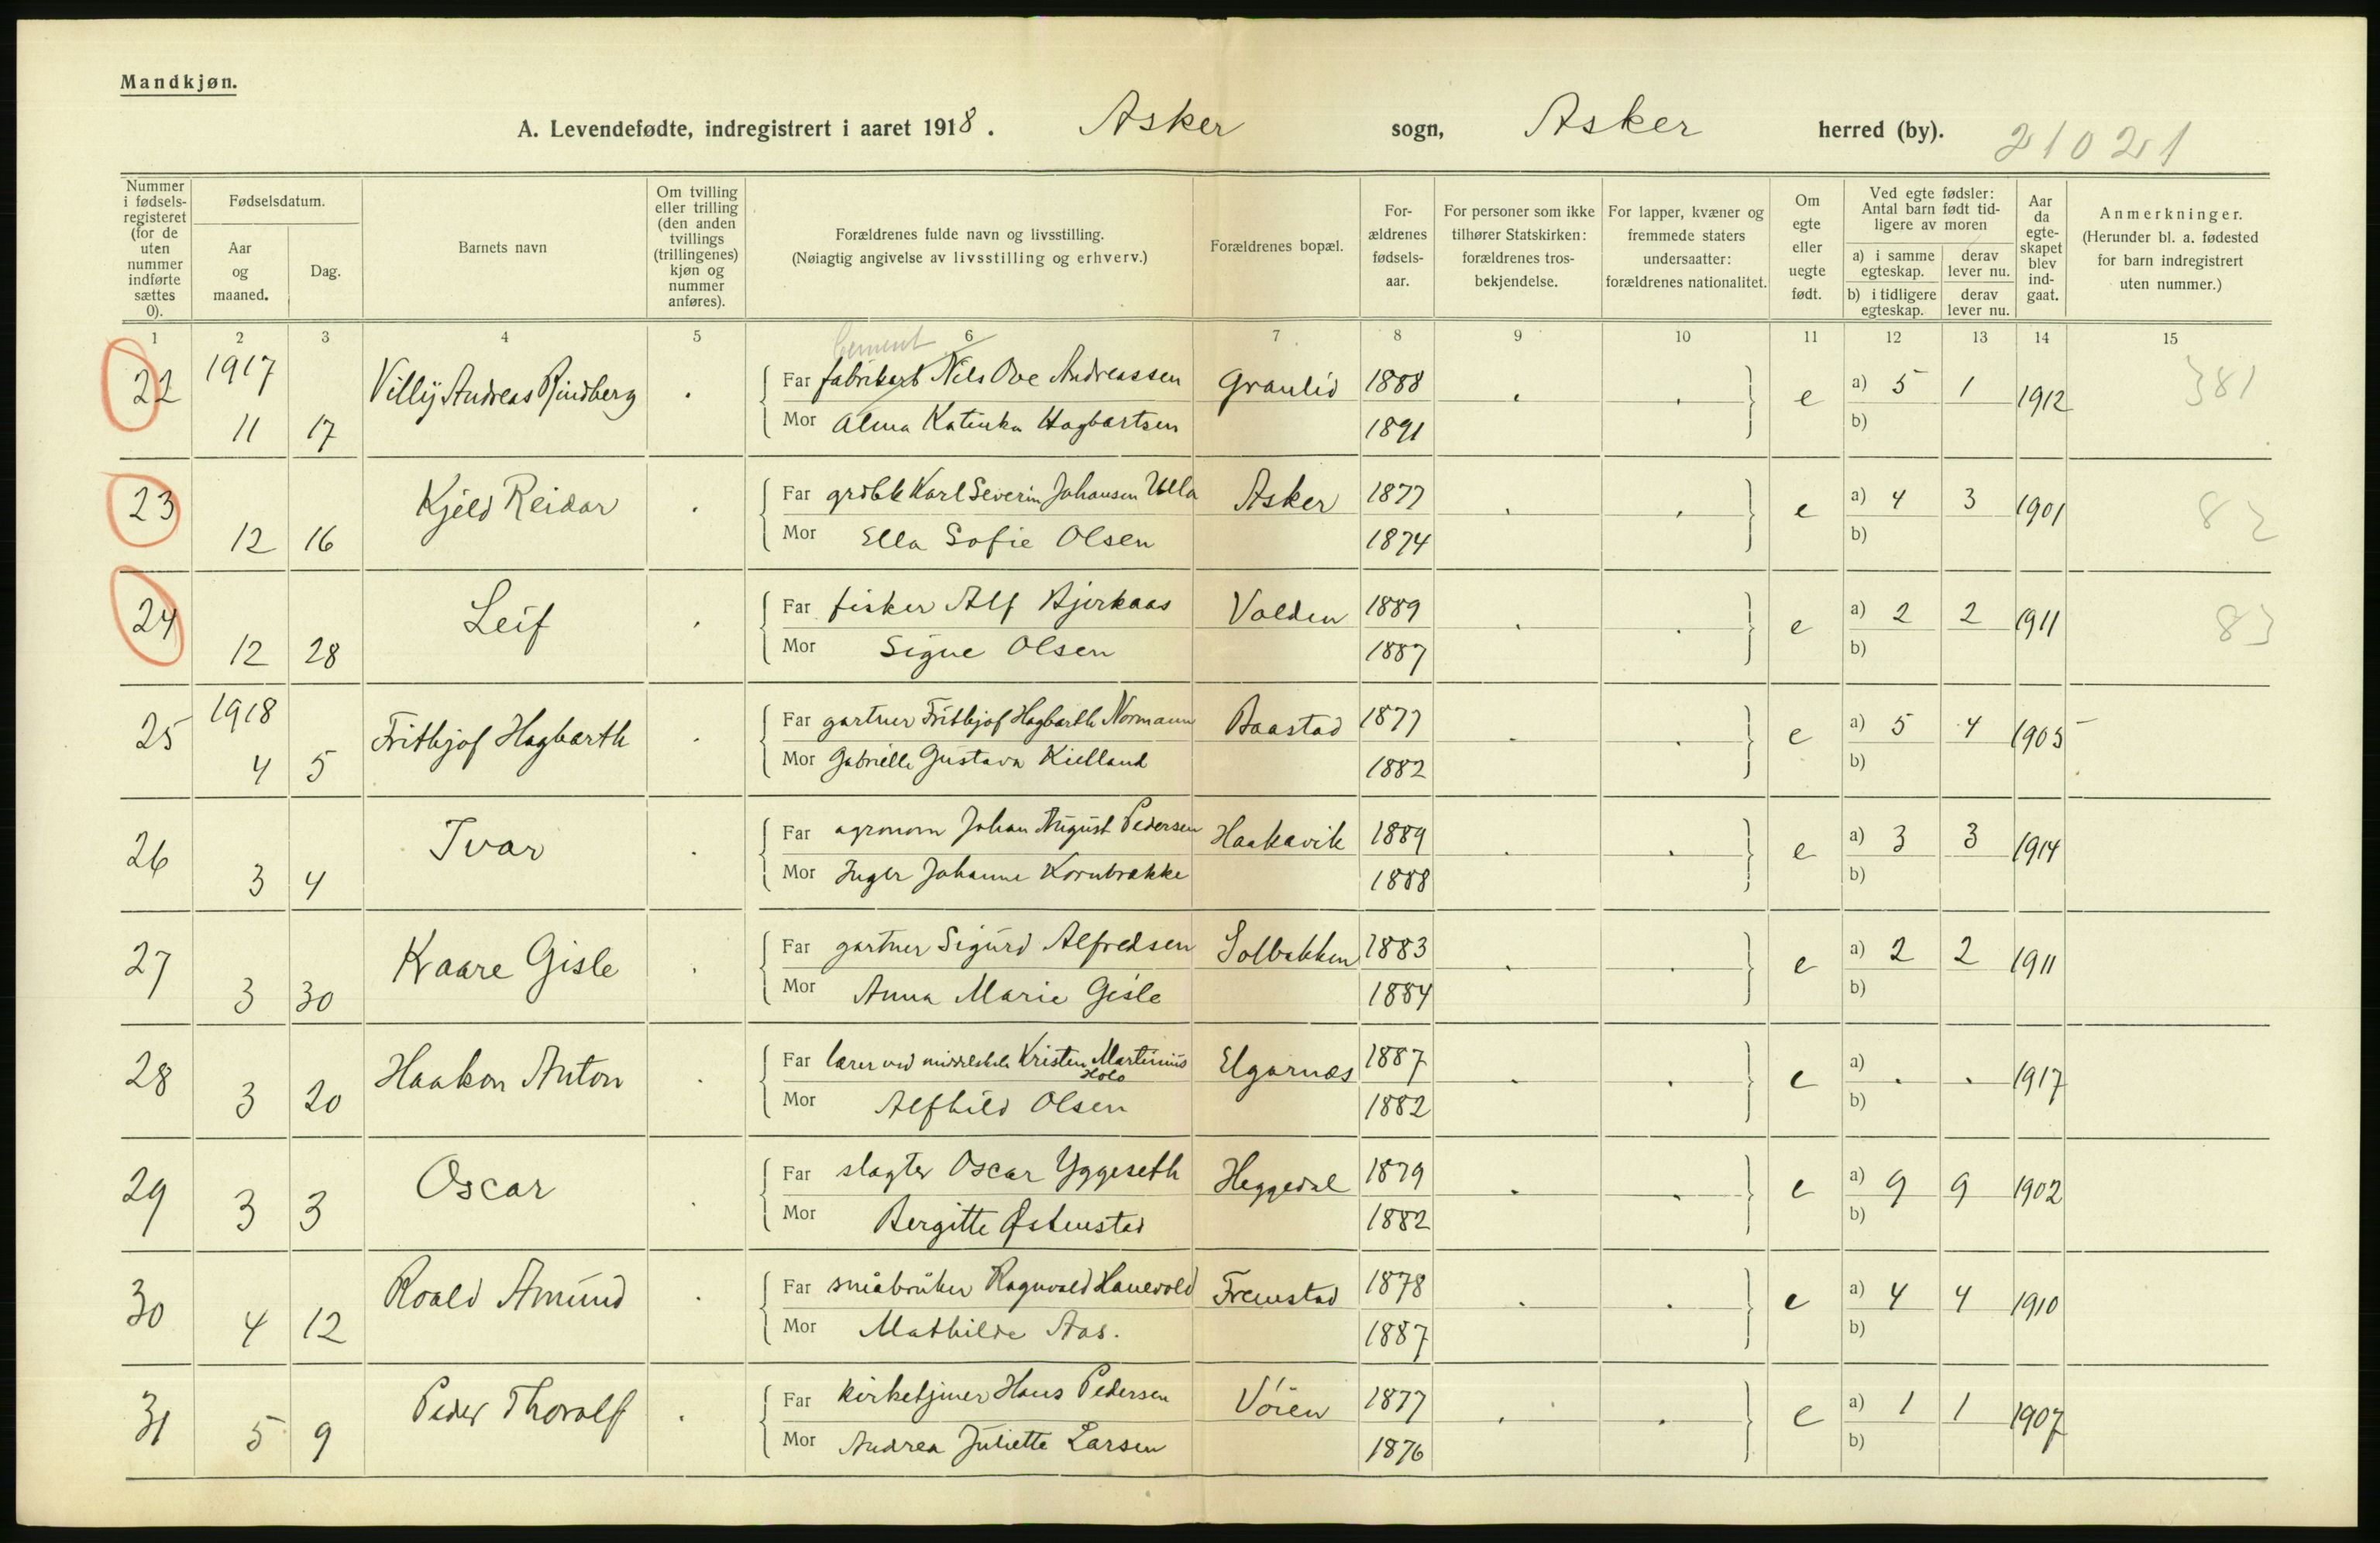 Mandkjøn.
A. Levendefødte, indregistrert i aaret 1918. Asker sogn, Asker herred (by). 21021
Nummer i fødselsregisteret (for de uten nummer indførte sættes 0).
Fødselsdatum.
Aar og maaned.
Dag.
Barnets navn
Om tvilling eller trilling (den anden tvillings (trillingenes) kjøn og nummer anføres).
Forældrenes fulde navn og livsstilling.
(Nøiagtig angivelse av livsstilling og erhverv.)
Forældrenes bopæl.
Forældrenes fødselsaar.
For personer som ikke tilhører Statskirken: forældrenes trosbekjendelse.
For lapper, kvæner og fremmede staters undersaatter: forældrenes nationalitet.
Om egte eller uegte født.
Ved egte fødsler: Antal barn født tidligere av moren
a) i samme egteskap. derav lever nu.
b) i tidligere egteskap. derav lever nu.
Aar da egteskapet blev indgaat.
Anmerkninger.
(Herunder bl. a. fødested for barn indregistrert uten nummer.)
1 2 3 4 5 6 7 8 9 10 11 12 13 14 15
Cement
22 1917 11 17 Villy Andreas Rindberg . Far fabrikarb Nils Ove Andreassen Graulid 1888 . . e a) 5 1 1912 381
Mor Alma Katinka Hagbartsen 1891 b)
23 12 16 Kjeld Reidar . Far Karl Severin Johansen Ulla Asker 1877 . . e a) 4 3 1901 82
Mor Ella Sofie Olsen 1874 b)
24 12 28 Leif . Far fisker Alf Bjerkaas Valden 1889 . . e a) 2 2 1911 83
Mor Signe Olsen 1887 b)
25 1918 4 5 Frithjof Hagbarth . Far gartner Frithjof Hagbarth Normann Baastad 1877 . . e a) 5 4 1905
Mor Gabrielle Gustava Kielland 1882 b)
26 3 4 Ivar . Far agronom Johan August Pedersen Haakavik 1889 . . e a) 3 3 1914
Mor Inger Johanne Kornbrække 1888 b)
27 3 30 Kaare Gisle . Far gartner Sigurd Alfredsen Solbakken 1883 . . e a) 2 2 1911
Mor Anna Marie Gisle 1884 b)
28 3 20 Haakon Anton . Far lærer ved middelskole Kristen Martinius Holo Elgarnes 1887 . . e a) . . 1917
Mor Alfhild Olsen 1882 b)
29 3 3 Oscar . Far slagter Oscar Yggeseth Heggedal 1879 . . e a) 9 9 1902
Mor Bergitte Østenstad 1882 b)
30 4 12 Roald Amund . Far småbruker Ragnvald Hanevold Fremstad 1878 . . e a) 4 4 1910
Mor Mathilde Aas. 1887 b)
31 5 9 Peder Thoralf . Far kirketjener Hans Pedersen Vøien 1877 . . e a) 1 1 1907
Mor Andrea Juliette Larsen 1876 b)